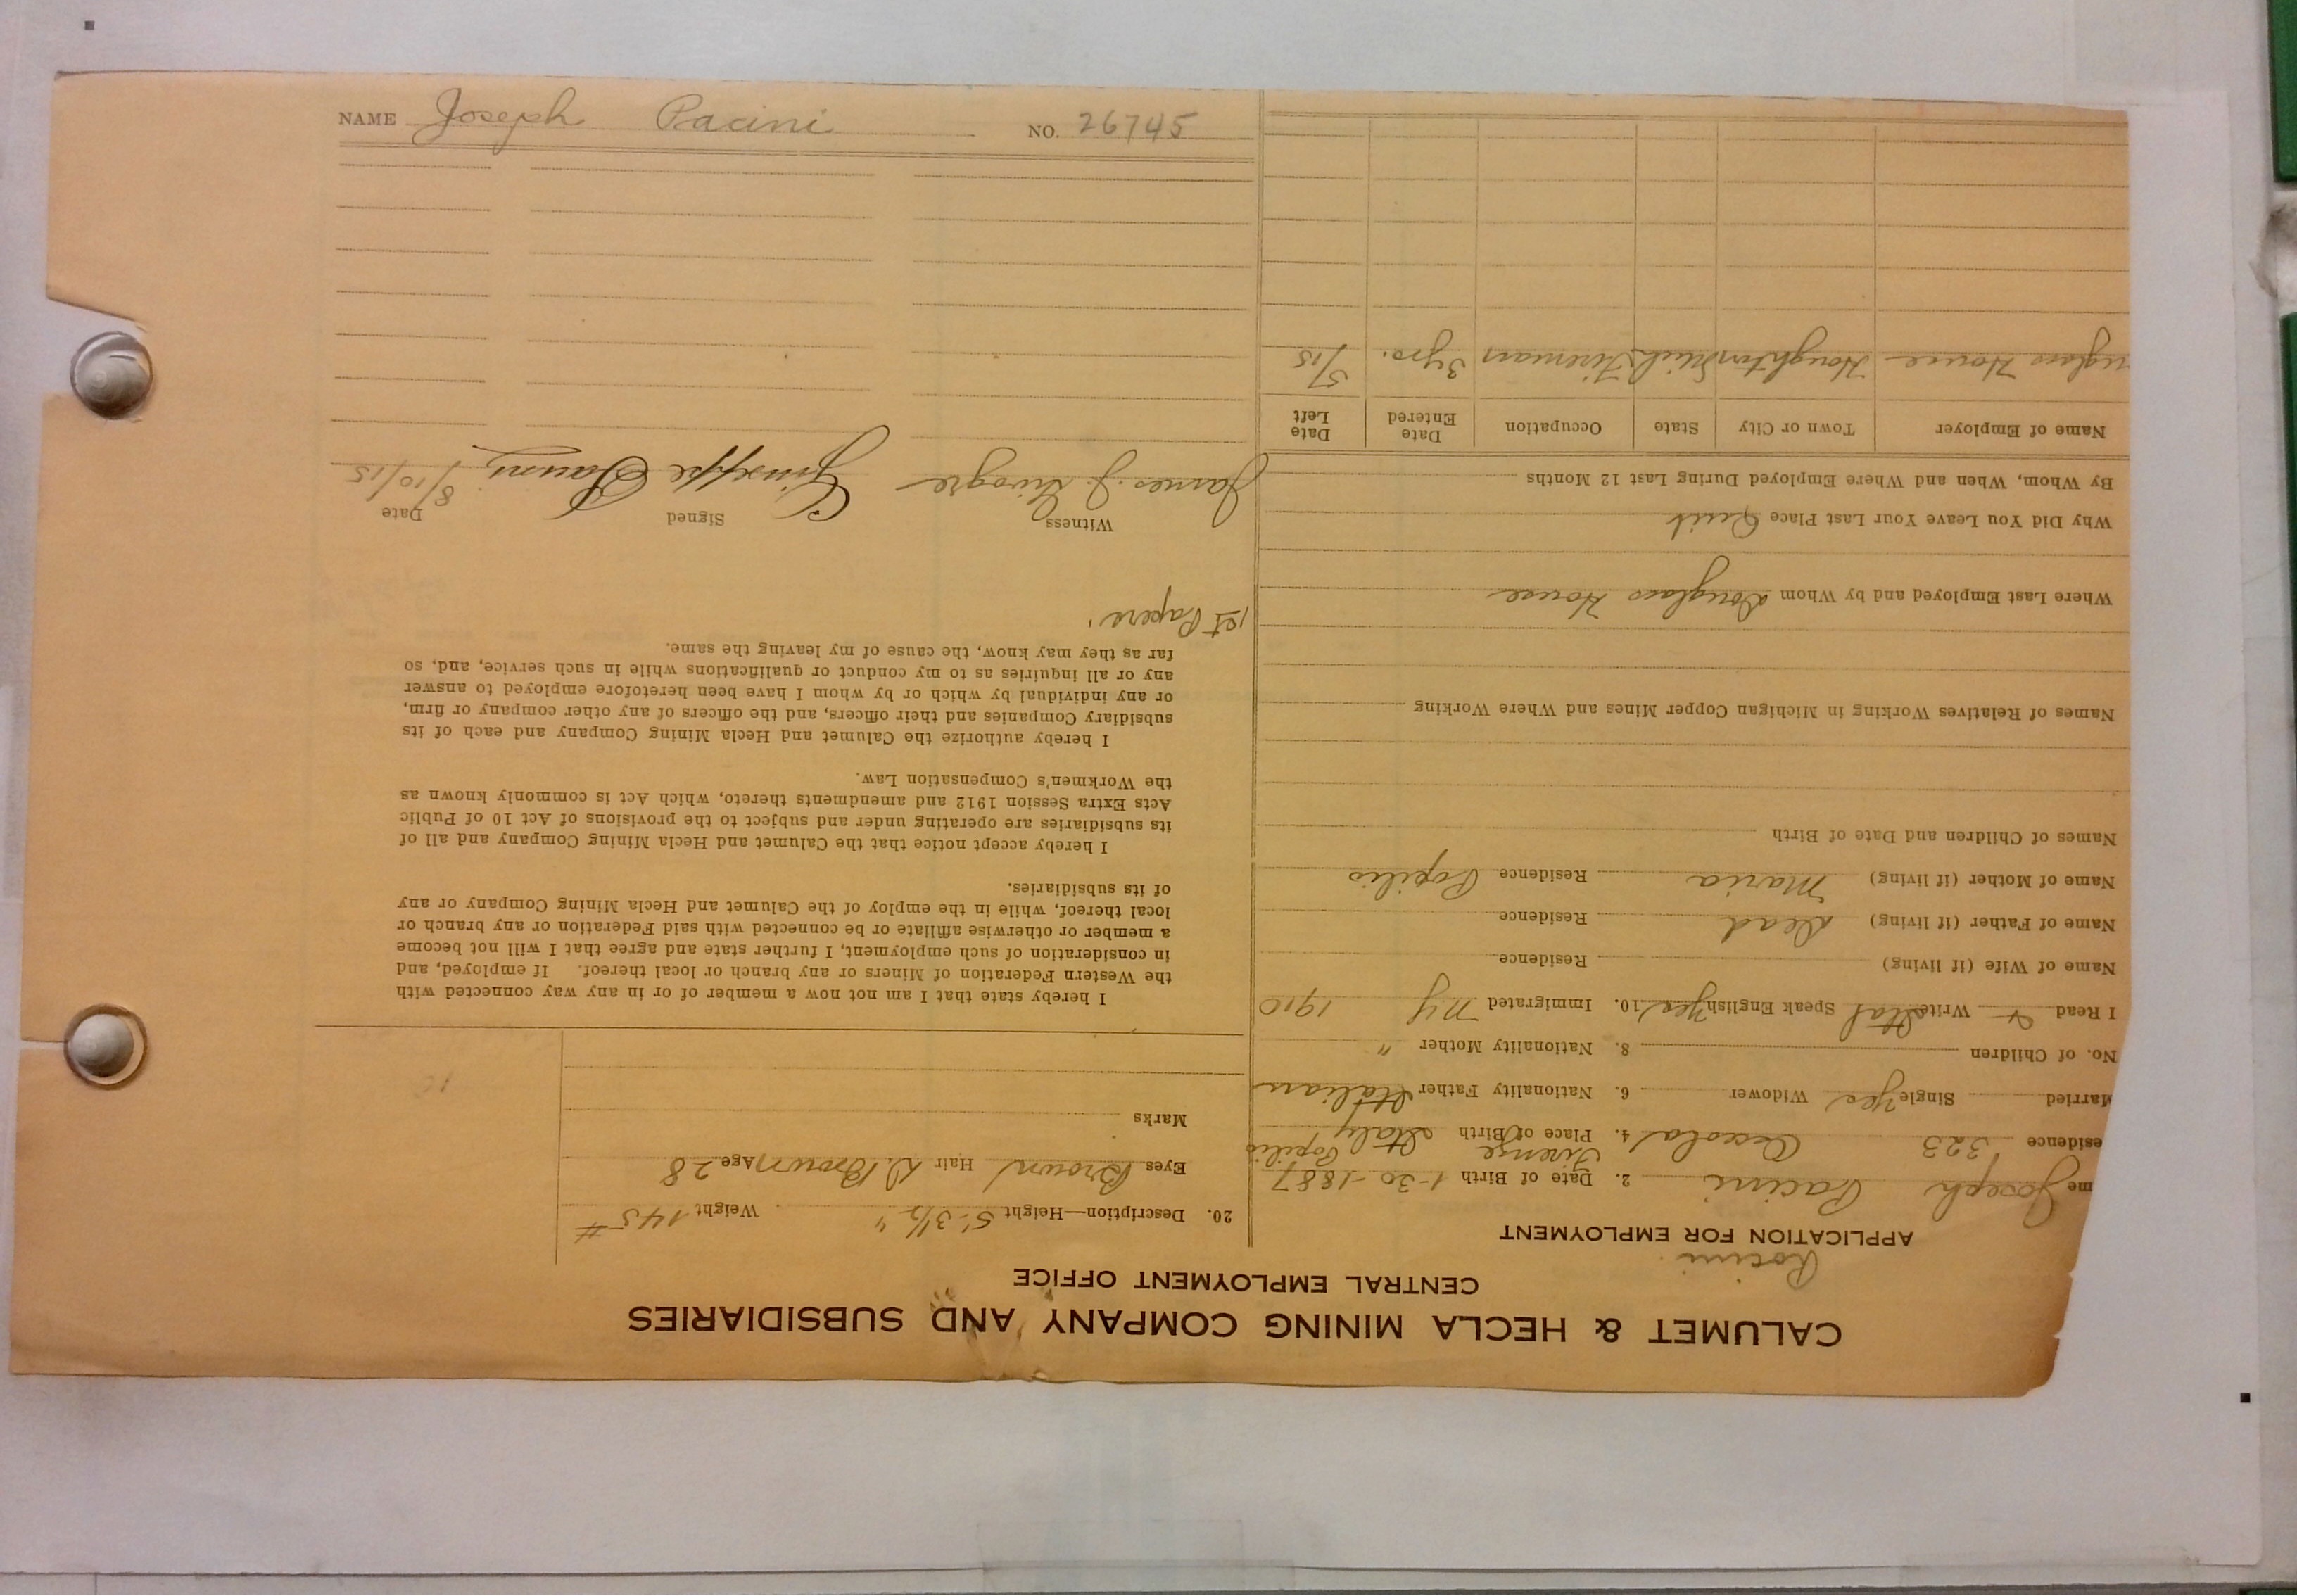 NAME Joseph Pacini NO. 26745
CALUMET & HECLA MINING COMPANY AND SUBSIDIARIES
CENTRAL EMPLOYMENT OFFICE
APPLICATION FOR EMPLOYMENT
me Joseph Pacini 2. Date of Birth 1-30-1887
esidence 323 Osceola 4. Place of Birth Italy Firenze Popilio
Married Single Yes Widower 6. Nationality Father Italian
No. of Children 8. Nationality Mother "
I Read Write Ital Speak English Yes 10. Immigrated N.Y. 1910
Name of Wife (if living) Residence
Name of Father (if living) Dead Residence
Name of Mother (if living) Maria Residence Popilio
Names of Children and Date of Birth
Names of Relatives Working in Michigan Copper Mines and Where Working
Where Last Employed and by Whom Douglass House
Why Did You Leave Your Last Place Quit
By Whom, When and Where Employed During Last 12 Months
Name of Employer Town or City State Occupation Date Entered Date Left
uglass House Houghton Mich. Fireman 3 yrs. 5/15
20. Description—Height 5'-3 1/2" Weight 145 #
Eyes Brown Hair D. Brown Age 28
Marks
I hereby state that I am not now a member of or in any way connected with
the Western Federation of Miners or any branch or local thereof. If employed, and
in consideration of such employment, I further state and agree that I will not become
a member or otherwise affiliate or be connected with said Federation or any branch or
local thereof, while in the employ of the Calumet and Hecla Mining Company or any
of its subsidiaries.
I hereby accept notice that the Calumet and Hecla Mining Company and all of
its subsidiaries are operating under and subject to the provisions of Act 10 of Public
Acts Extra Session 1912 and amendments thereto, which Act is commonly known as
the Workmen's Compensation Law.
I hereby authorize the Calumet and Hecla Mining Company and each of its
subsidiary Companies and their officers, and the officers of any other company or firm,
or any individual by which or by whom I have been heretofore employed to answer
any or all inquiries as to my conduct or qualifications while in such service, and, so
far as they may know, the cause of my leaving the same.
1st Papers.
Witness Signed Date
James J. Giuseppe 8/10/15